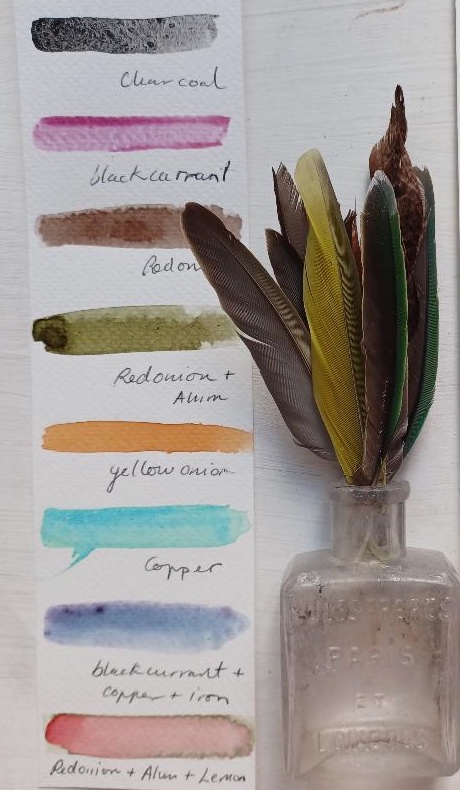 Charcoal
blackcurrant
Redon
Redonion +
Alum
yellow onion
Copper
blackcurrant +
copper + iron
Redonion + Alum + Lemon
PARIS
ET